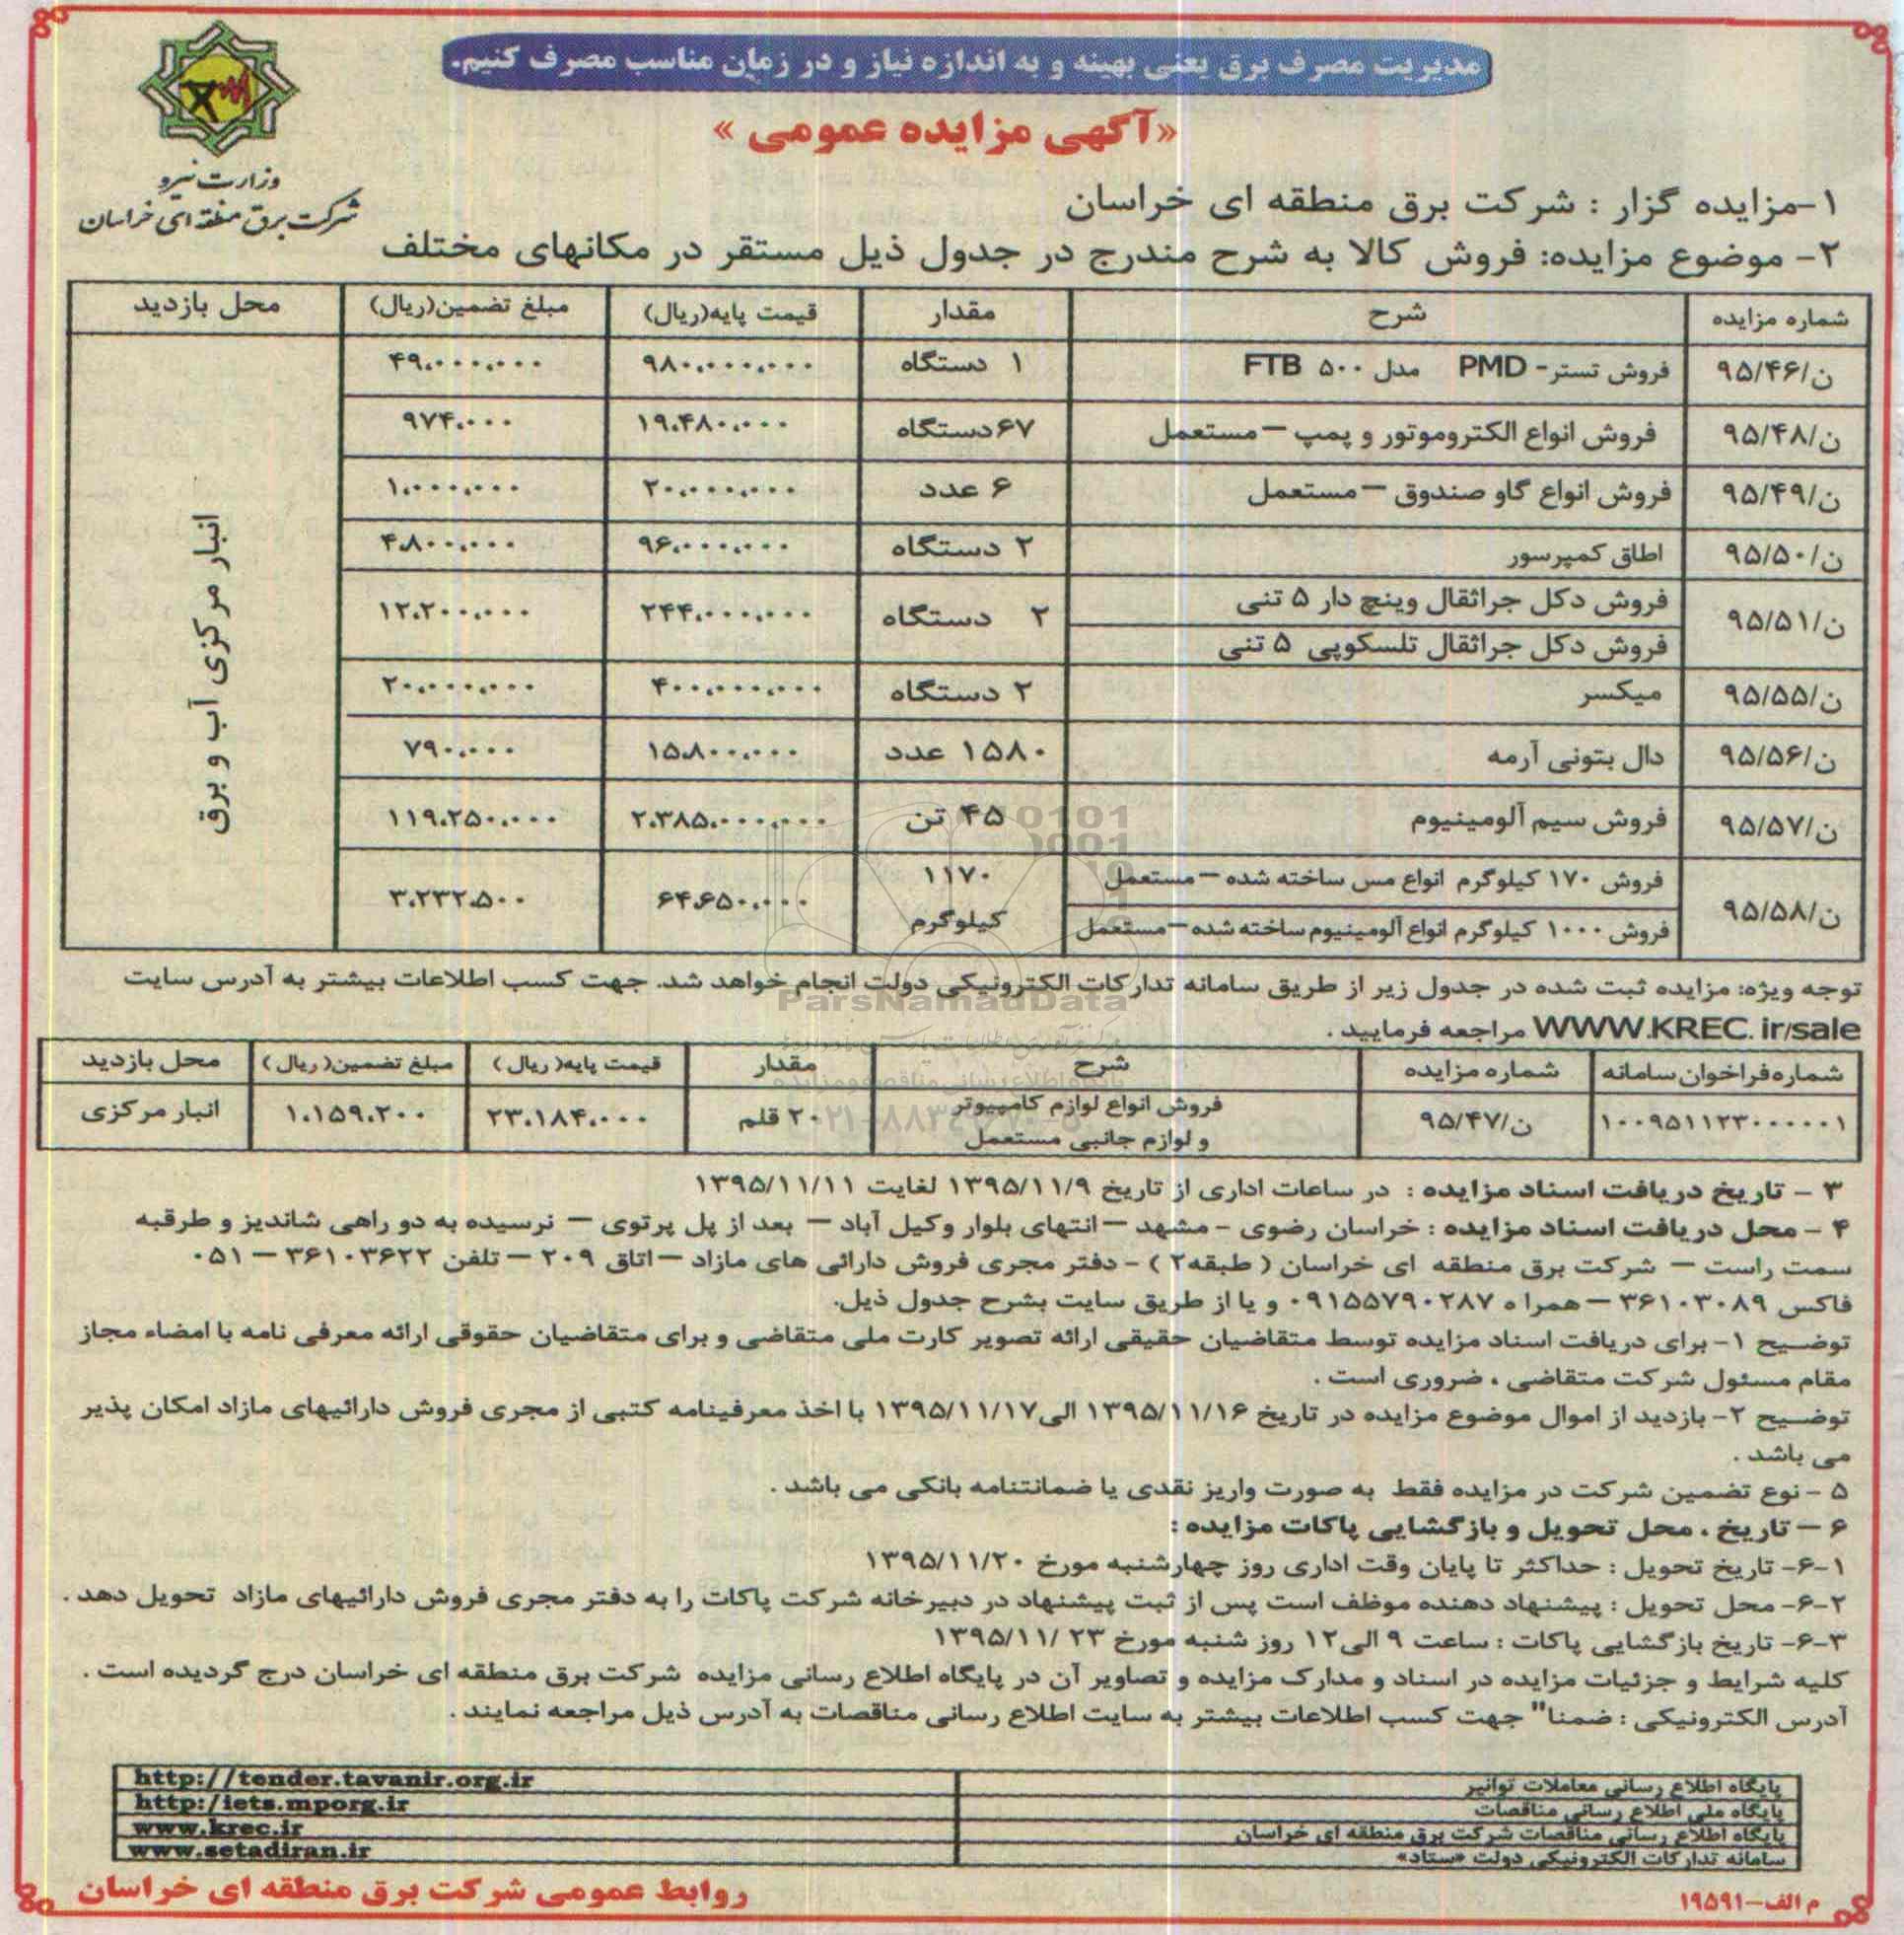 مدیریت مصرف برق یعنی بهینه و به اندازه نیاز و در زمان مناسب مصرف کنیم.
«آگهی مزایده عمومی »
وزارت نیرو
شرکت برق منطقه ای خراسان
۱-مزایده گزار : شرکت برق منطقه ای خراسان
۲- موضوع مزایده: فروش کالا به شرح مندرج در جدول ذیل مستقر در مکانهای مختلف
شماره مزایده شرح مقدار قیمت پایه(ریال) مبلغ تضمین(ریال) محل بازدید
ن/۹۵/۴۶ فروش تستر- PMD مدل ۵۰۰ FTB ۱ دستگاه ۹۸۰،۰۰۰،۰۰۰ ۴۹،۰۰۰،۰۰۰
ن/۹۵/۴۸ فروش انواع الکتروموتور و پمپ –مستعمل ۶۷دستگاه ۱۹،۴۸۰،۰۰۰ ۹۷۴،۰۰۰
ن/۹۵/۴۹ فروش انواع گاو صندوق –مستعمل ۶ عدد ۲۰،۰۰۰،۰۰۰ ۱،۰۰۰،۰۰۰
ن/۹۵/۵۰ اطاق کمپرسور ۲ دستگاه ۹۶،۰۰۰،۰۰۰ ۴،۸۰۰،۰۰۰
ن/۹۵/۵۱ فروش دکل جراثقال وینچ دار ۵ تنی
فروش دکل جراثقال تلسکوپی ۵ تنی ۲ دستگاه ۲۴۴،۰۰۰،۰۰۰ ۱۲،۲۰۰،۰۰۰
ن/۹۵/۵۵ میکسر ۲ دستگاه ۴۰۰،۰۰۰،۰۰۰ ۲۰،۰۰۰،۰۰۰
ن/۹۵/۵۶ دال بتونی آرمه ۱۵۸۰ عدد ۱۵،۸۰۰،۰۰۰ ۷۹۰،۰۰۰
ن/۹۵/۵۷ فروش سیم آلومینیوم ۴۵ تن ۲،۳۸۵،۰۰۰،۰۰۰ ۱۱۹،۲۵۰،۰۰۰
ن/۹۵/۵۸ فروش ۱۷۰ کیلوگرم انواع مس ساخته شده –مستعمل
فروش ۱۰۰۰ کیلوگرم انواع آلومینیوم ساخته شده –مستعمل ۱۱۷۰ کیلوگرم ۶۴،۶۵۰،۰۰۰ ۳،۲۳۲،۵۰۰
انبار مرکزی آب و برق
توجه ویژه: مزایده ثبت شده در جدول زیر از طریق سامانه تدارکات الکترونیکی دولت انجام خواهد شد. جهت کسب اطلاعات بیشتر به آدرس سایت
WWW.KREC.ir/sale مراجعه فرمایید .
ParsNamadData
شماره فراخوان سامانه شماره مزایده شرح مقدار قیمت پایه( ریال ) مبلغ تضمین( ریال ) محل بازدید
۱۰۰۹۵۱۱۲۳۰۰۰۰۰۱ ن/۹۵/۴۷ فروش انواع لوازم کامپیوتر
و لوازم جانبی مستعمل ۲۰ قلم ۲۳،۱۸۴،۰۰۰ ۱،۱۵۹،۲۰۰ انبار مرکزی
۳ - تاریخ دریافت اسناد مزایده : در ساعات اداری از تاریخ ۱۳۹۵/۱۱/۹ لغایت ۱۳۹۵/۱۱/۱۱
۴ - محل دریافت اسناد مزایده : خراسان رضوی -مشهد –انتهای بلوار وکیل آباد – بعد از پل پرتوی – نرسیده به دو راهی شاندیز و طرقبه
سمت راست – شرکت برق منطقه ای خراسان ( طبقه۲ ) - دفتر مجری فروش دارائی های مازاد –اتاق ۲۰۹ – تلفن ۳۶۱۰۳۶۲۲ – ۰۵۱
فاکس ۳۶۱۰۳۰۸۹ –همراه ۰۹۱۵۵۷۹۰۲۸۷ و یا از طریق سایت بشرح جدول ذیل.
توضیح ۱- برای دریافت اسناد مزایده توسط متقاضیان حقیقی ارائه تصویر کارت ملی متقاضی و برای متقاضیان حقوقی ارائه معرفی نامه با امضاء مجاز
مقام مسئول شرکت متقاضی ، ضروری است .
توضیح ۲- بازدید از اموال موضوع مزایده در تاریخ ۱۳۹۵/۱۱/۱۶ الی۱۳۹۵/۱۱/۱۷ با اخذ معرفینامه کتبی از مجری فروش دارائیهای مازاد امکان پذیر
می باشد .
۵ - نوع تضمین شرکت در مزایده فقط به صورت واریز نقدی یا ضمانتنامه بانکی می باشد .
۶ – تاریخ ، محل تحویل و بازگشایی پاکات مزایده :
۶-۱- تاریخ تحویل : حداکثر تا پایان وقت اداری روز چهارشنبه مورخ ۱۳۹۵/۱۱/۲۰
۶-۲- محل تحویل : پیشنهاد دهنده موظف است پس از ثبت پیشنهاد در دبیرخانه شرکت پاکات را به دفتر مجری فروش دارائیهای مازاد تحویل دهد .
۶-۳- تاریخ بازگشایی پاکات : ساعت ۹ الی۱۲ روز شنبه مورخ ۲۳ /۱۳۹۵/۱۱
کلیه شرایط و جزئیات مزایده در اسناد و مدارک مزایده و تصاویر آن در پایگاه اطلاع رسانی مزایده شرکت برق منطقه ای خراسان درج گردیده است .
آدرس الکترونیکی : ضمنا" جهت کسب اطلاعات بیشتر به سایت اطلاع رسانی مناقصات به آدرس ذیل مراجعه نمایند .
پایگاه اطلاع رسانی معاملات توانیر http://tender.tavanir.org.ir
پایگاه ملی اطلاع رسانی مناقصات http:/iets.mporg.ir
پایگاه اطلاع رسانی مناقصات شرکت برق منطقه ای خراسان www.krec.ir
سامانه تدارکات الکترونیکی دولت «ستاد» www.setadiran.ir
روابط عمومی شرکت برق منطقه ای خراسان
م الف-۱۹۵۹۱